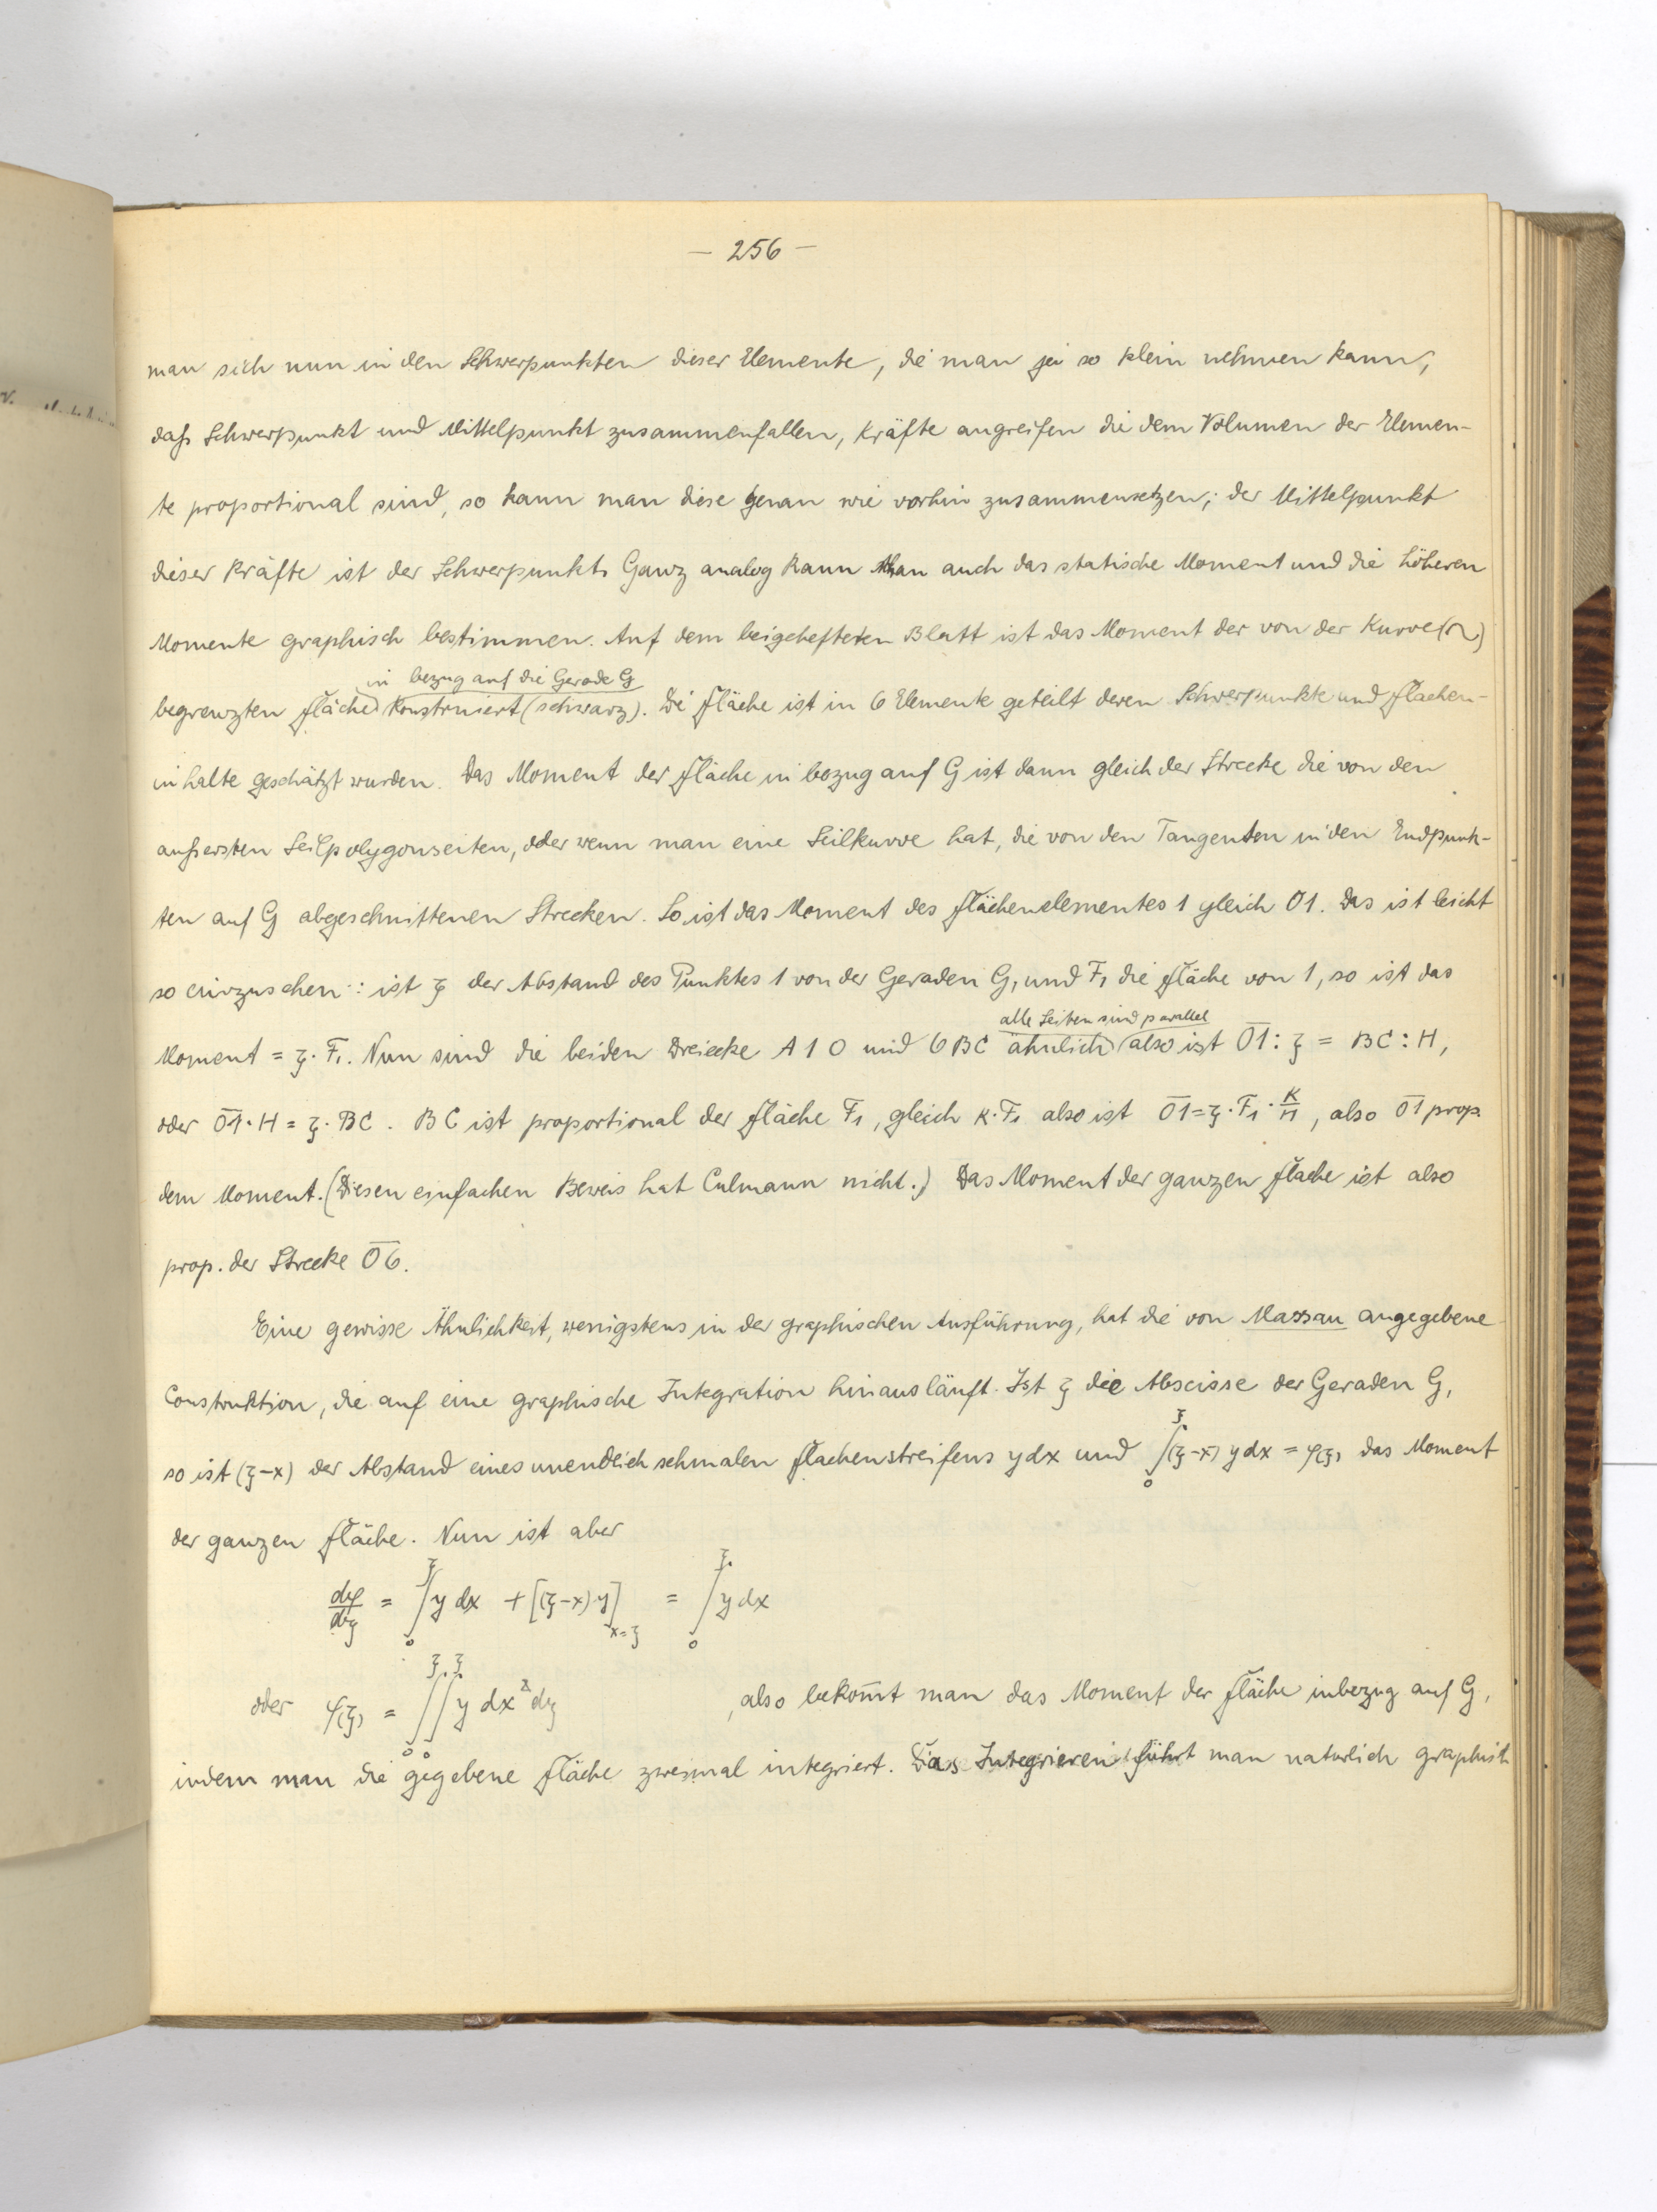 — 256 —
man sich nun in den Schwerpunkten dieser Elemente, die man ja so klein nehmen kann,
daß Schwerpunkt und Mittelpunkt zusammenfallen, Kräfte angreifen die dem Volumen der Elemen-
te proportional sind, so kann man diese genau wie vorhin zusammensetzen; der Mittelpunkt
dieser Kräfte ist der Schwerpunkt. Ganz analog kann man auch das statische Moment und die höheren
Momente graphisch bestimmen. Auf dem beigehefteten Blatt ist das Moment der von der Kurve (~)
in bezug auf die Gerade G
begrenzten Fläche konstruiert (schwarz). Die Fläche ist in 6 Elemente geteilt deren Schwerpunkte und Flächen-
inhalte geschätzt wurden. Das Moment der Fläche in bezug auf G ist dann gleich der Strecke die von den
äußersten Seilpolygonseiten, oder wenn man eine Seilkurve hat, die von den Tangenten in den Endpunk-
ten auf G abgeschnittenen Strecken. So ist das Moment des Flächenelementes 1 gleich 01. Das ist leicht
so einzusehen: ist ξ der Abstand des Punktes 1 von der Geraden G, und F₁ die Fläche von 1, so ist das
alle Seiten sind parallel
Moment = ξ · F₁. Nun sind die beiden Dreiecke A 1 0 und 6 BC ähnlich also ist 0̅1̅ : ξ = BC : H,
oder 0̅1̅ · H = ξ · BC. BC ist proportional der Fläche F₁, gleich K · F₁ also ist 0̅1̅ = ξ · F₁ · K/H, also 0̅1̅ prop.
dem Moment. (Diesen einfachen Beweis hat Culmann nicht.) Das Moment der ganzen Fläche ist also
prop. der Strecke 0̅6̅.
Eine gewisse Ähnlichkeit, wenigstens in der graphischen Ausführung, hat die von Massau angegebene
Construktion, die auf eine graphische Integration hinausläuft. Ist ξ die Abscisse der Geraden G,
so ist (ξ-x) der Abstand eines unendlich schmalen Flächenstreifens y dx und ∫₀^ξ (ξ-x) y dx = φ(ξ) das Moment
der ganzen Fläche. Nun ist aber
dφ/dξ = ∫₀^ξ y dx + [(ξ-x) y]_{x=ξ} = ∫₀^ξ y dx
oder φ(ξ) = ∫₀^ξ ∫₀^ξ y dx² dξ , also bekomt man das Moment der Fläche inbezug auf G,
indem man die gegebene Fläche zweimal integriert. Das Integrieren führt man natürlich graphisch